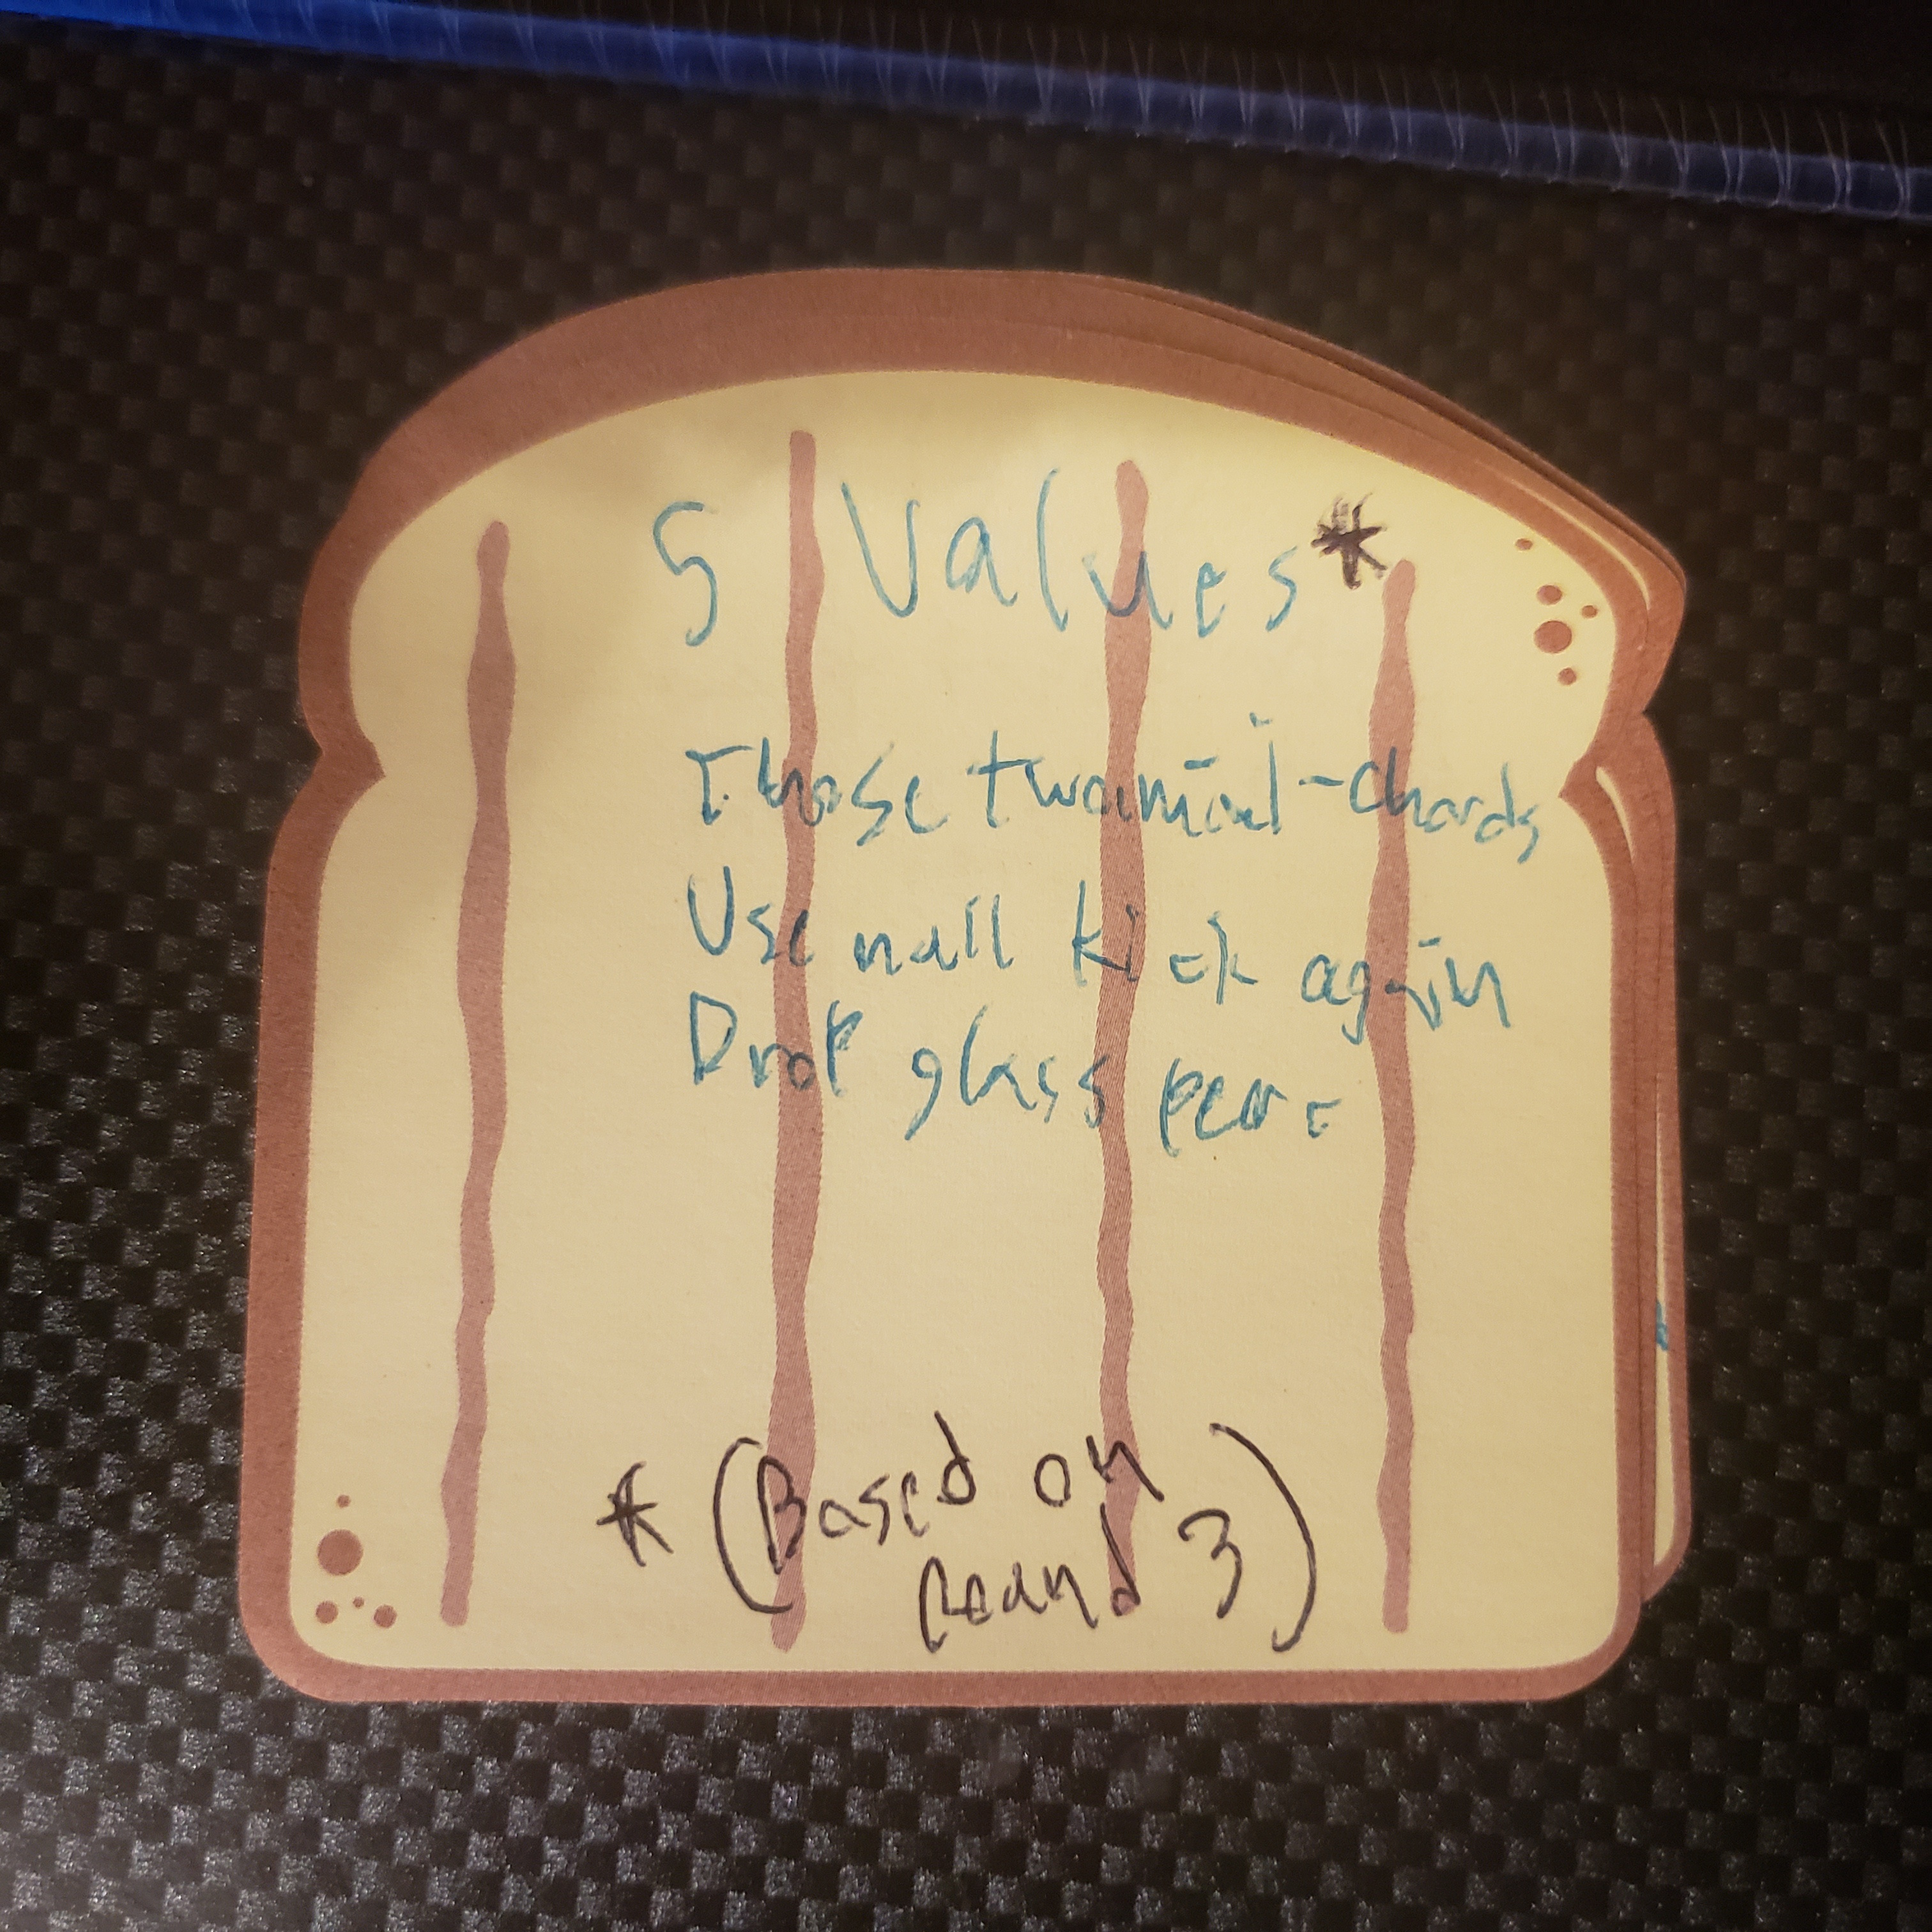 5 Values*
Those two -chords
Use nall kick again
Drop glass
*(Based on
Round 3)